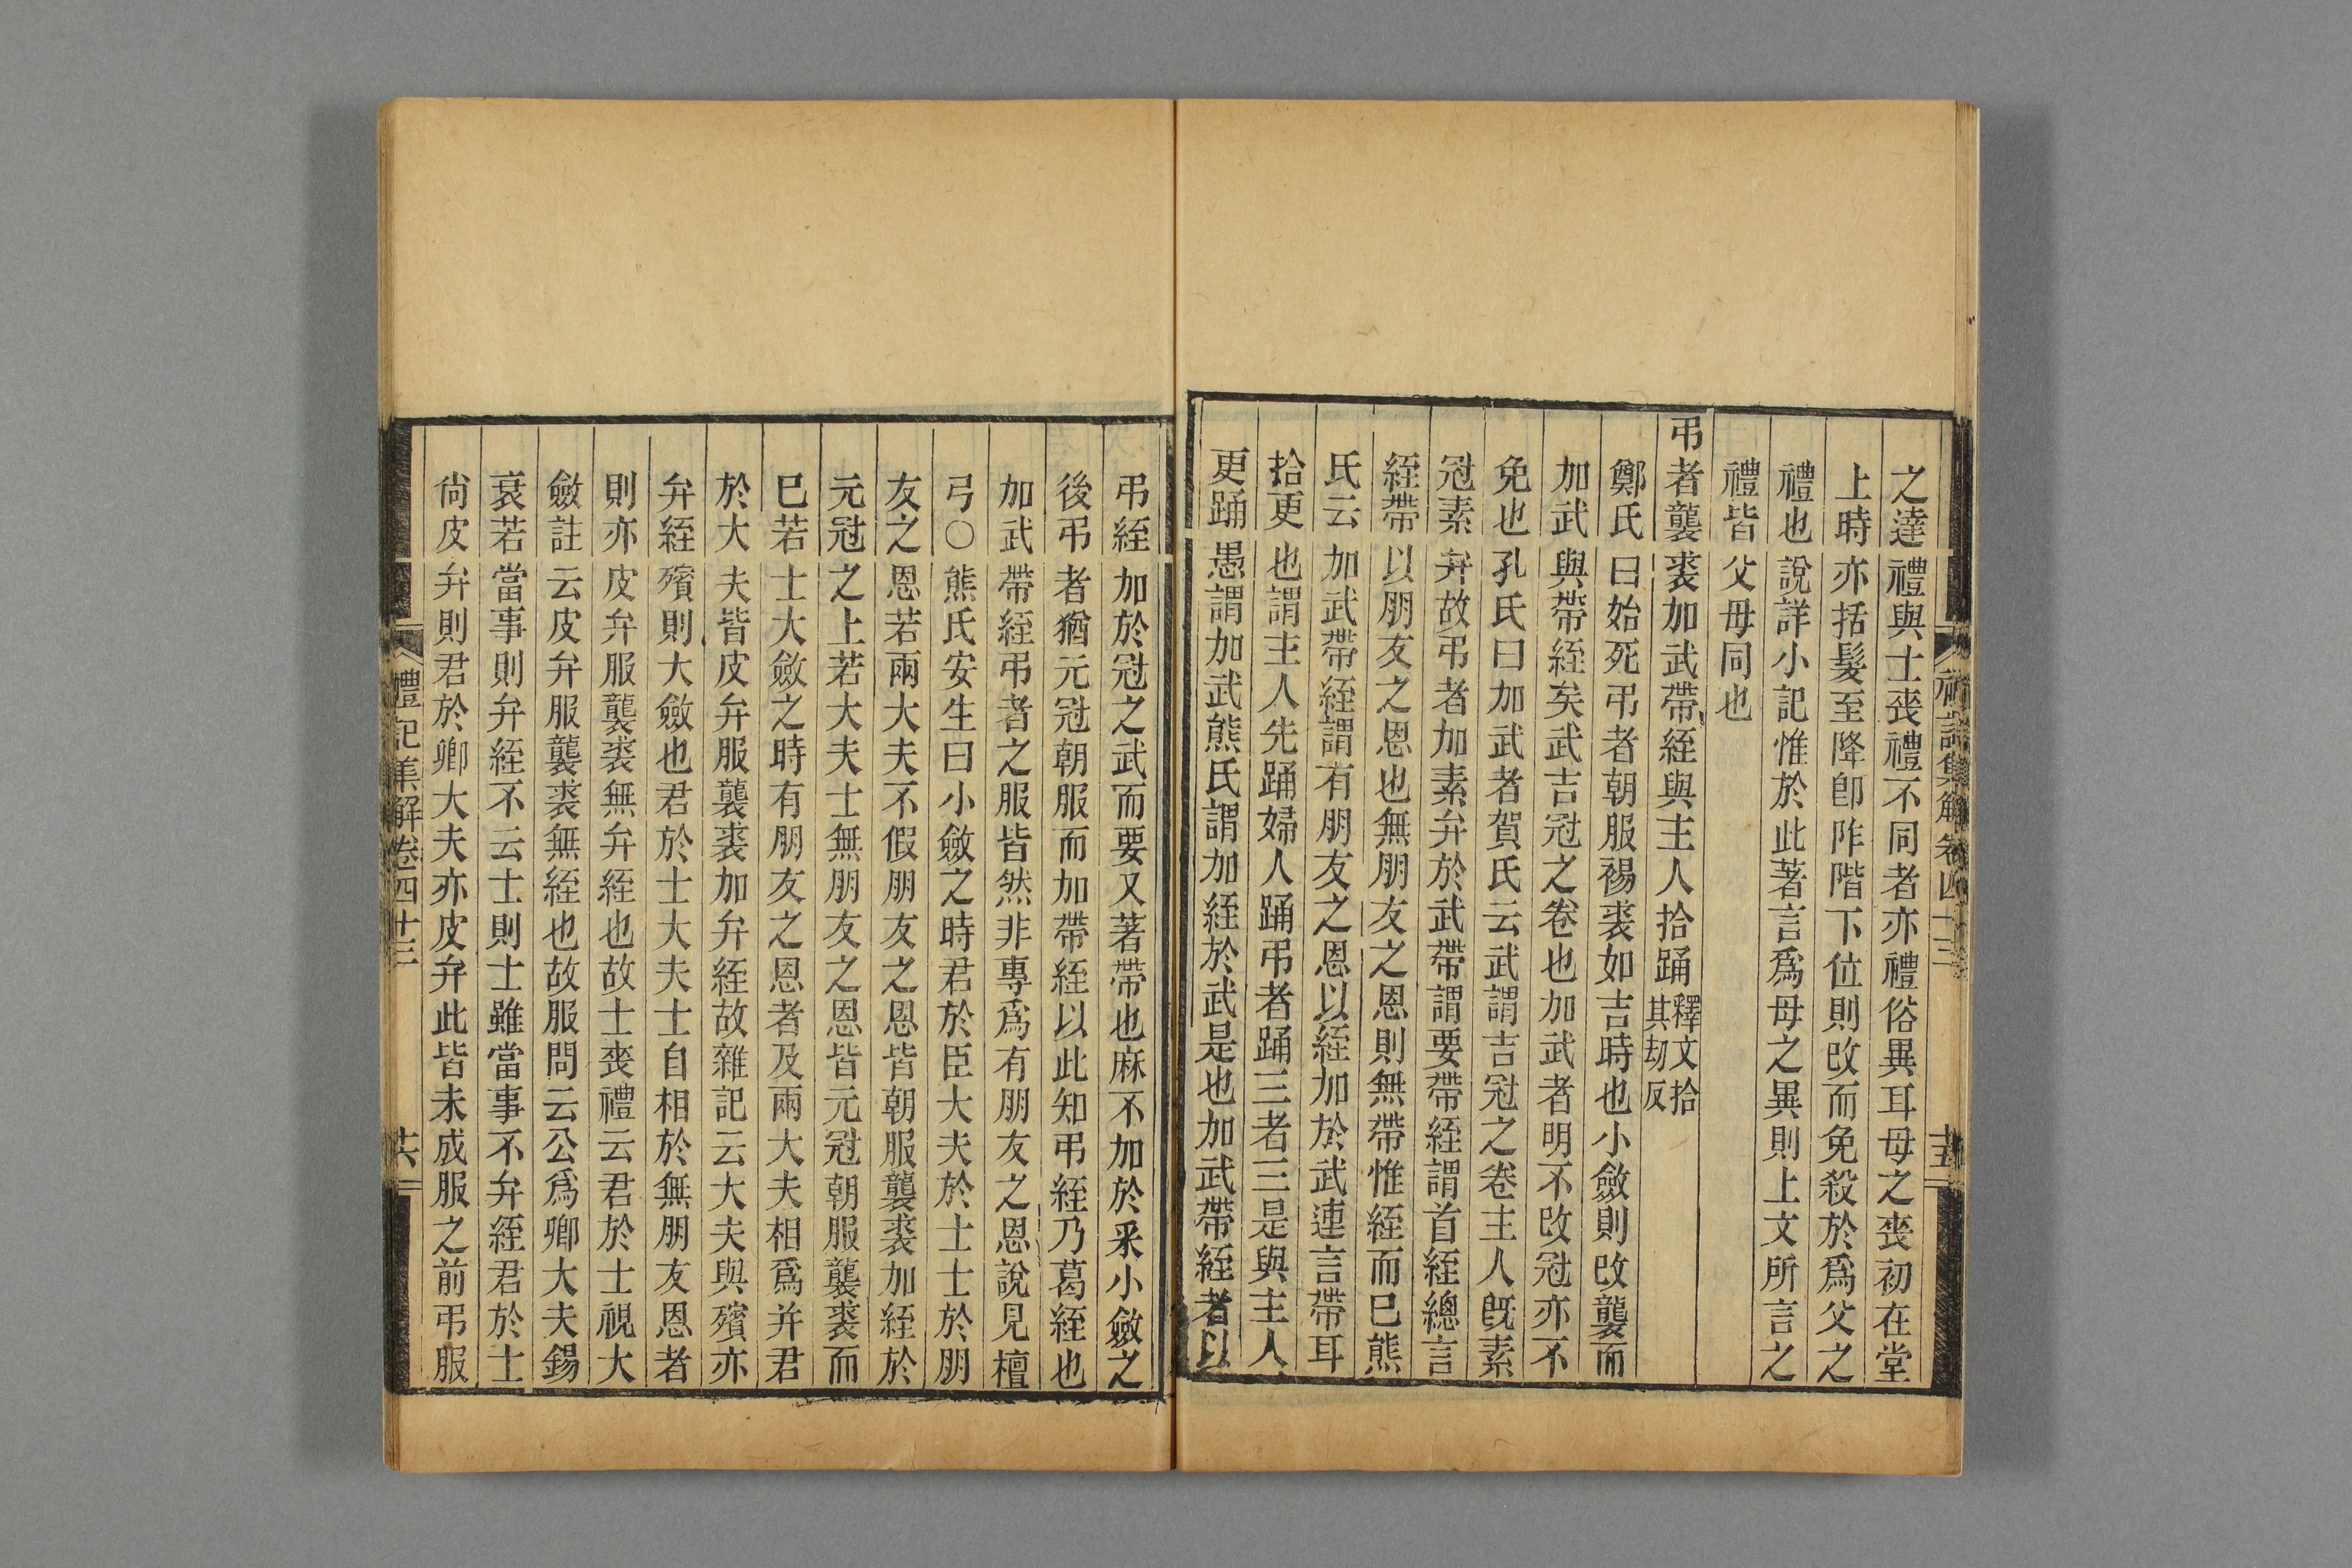 之達禮與士喪禮不同者亦禮俗異耳母之喪初在堂
上時亦括髮至降卽阼階下位則改而免殺於爲父之
禮也說詳小記惟於此著言爲母之異則上文所言之
禮皆父母同也
弔者襲裘加武帶絰與主人拾踊釋文拾其劫反
鄭氏曰始死弔者朝服裼裘如吉時也小斂則改襲而
加武與帶絰矣武吉冠之卷也加武者明不改冠亦不
免也孔氏曰加武者賀氏云武謂吉冠之卷主人旣素
冠素弁故弔者加素弁於武帶謂要帶絰謂首絰總言
絰帶以朋友之恩也無朋友之恩則無帶惟絰而已熊
氏云加武帶絰謂有朋友之恩以絰加於武連言帶耳
拾更也謂主人先踊婦人踊弔者踊三者三是與主人
更踊愚謂加武熊氏謂加絰於武是也加武帶絰者以
禮記集解卷四十三
十五
弔絰加於冠之武而要又著帶也麻不加於采小斂之
後弔者猶元冠朝服而加帶絰以此知弔絰乃葛絰也
加武帶絰弔者之服皆然非專爲有朋友之恩說見檀
弓○熊氏安生曰小斂之時君於臣大夫於士士於朋
友之恩若兩大夫不假朋友之恩皆朝服襲裘加絰於
元冠之上若大夫士無朋友之恩皆元冠朝服襲裘而
已若士大斂之時有朋友之恩者及兩大夫相爲并君
於大夫皆皮弁服襲裘加弁絰故雜記云大夫與殯亦
弁絰殯則大斂也君於士大夫士自相於無朋友恩者
則亦皮弁服襲裘無弁絰也故士喪禮云君於士視大
斂註云皮弁服襲裘無絰也故服問云公爲卿大夫錫
衰若當事則弁絰不云士則士雖當事不弁絰君於士
尙皮弁則君於卿大夫亦皮弁此皆未成服之前弔服
禮記集解卷四十三
十六